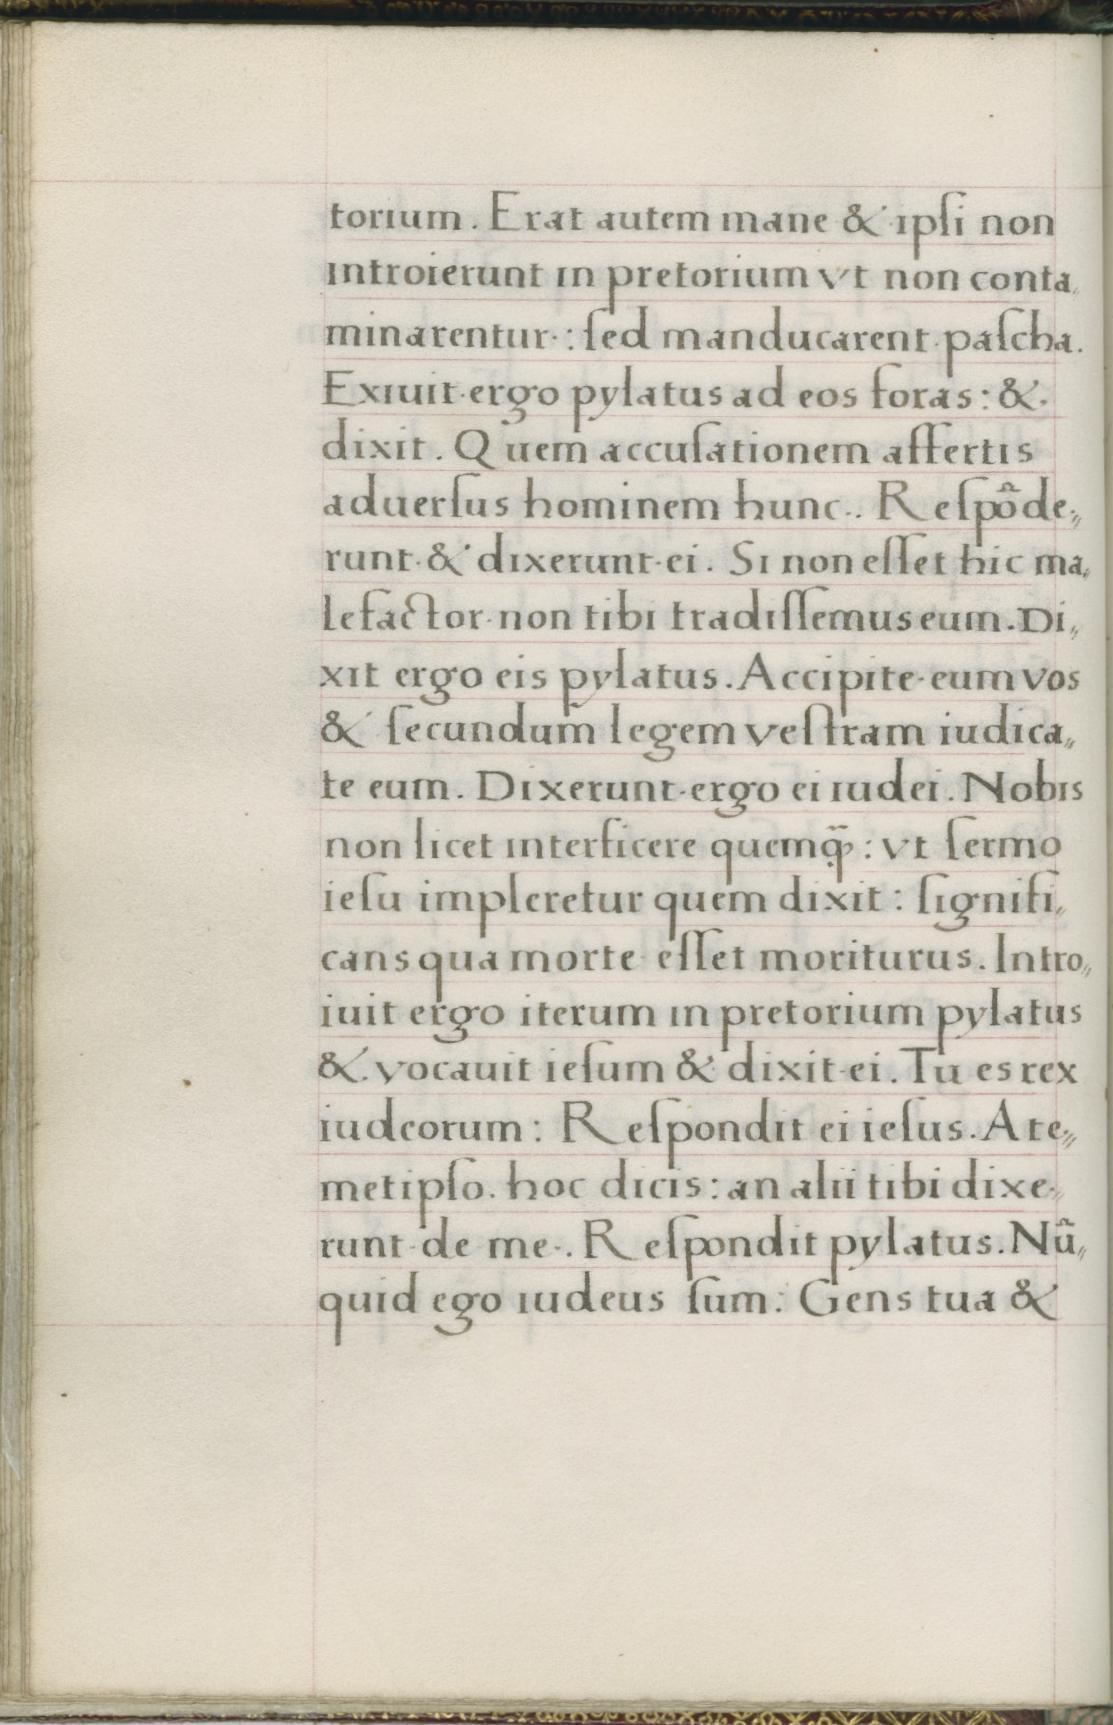 torium. Erat autem mane & ipſi non
introierunt in pretorium vt non conta,
minarentur: ſed manducarent paſcha.
Exiuit ergo pylatus ad eos foras: &
dixit. Quem accuſationem affertis
aduerſus hominem hunc. Reſpõde,,
runt & dixerunt ei. Si non eſſet hic ma,,
lefactor non tibi tradiſſemus eum. Di,,
xit ergo eis pylatus. Accipite eum vos
& ſecundum legem veſtram iudica,,
te eum. Dixerunt ergo ei iudei. Nobis
non licet interficere quemq̃: vt ſermo
ieſu impleretur quem dixit: ſignifi,,
cans qua morte eſſet moriturus. Intro,,
iuit ergo iterum in pretorium pylatus
& vocauit ieſum & dixit ei. Tu es rex
iudeorum: Reſpondit ei ieſus. A te,,
metipſo hoc dicis: an alii tibi dixe,,
runt de me. Reſpondit pylatus. Nũ,,
quid ego iudeus ſum: Gens tua &